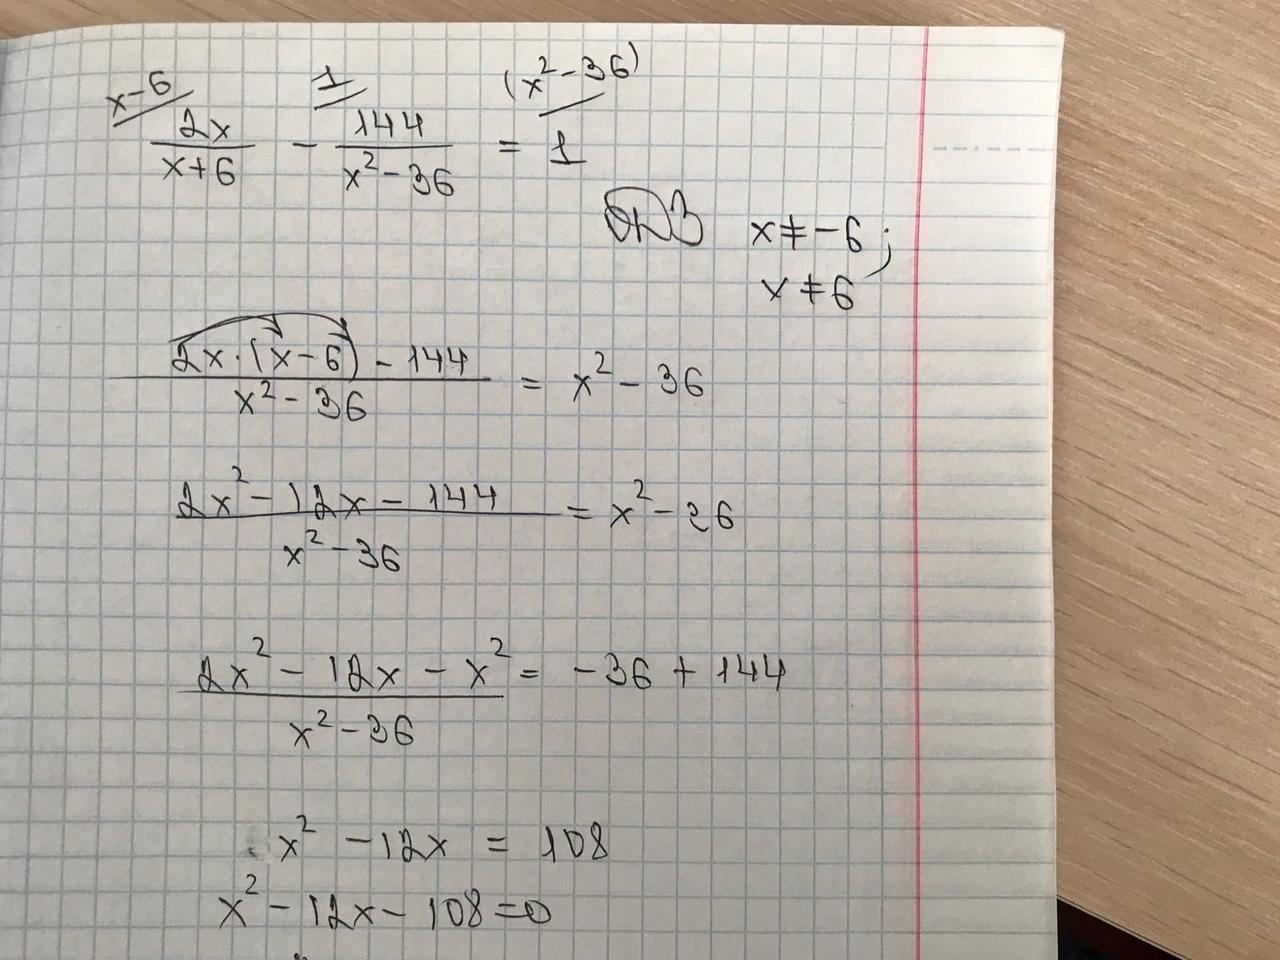 x-6 1 (x²-36)
2x/(x+6) - 144/(x²-36) = 1
ОДЗ x≠-6;
x≠6
(2x·(x-6)-144)/(x²-36) = x²-36
(2x²-12x-144)/(x²-36) = x²-26
(2x²-12x-x²)/(x²-36) = -36+144
x²-12x = 108
x²-12x-108=0